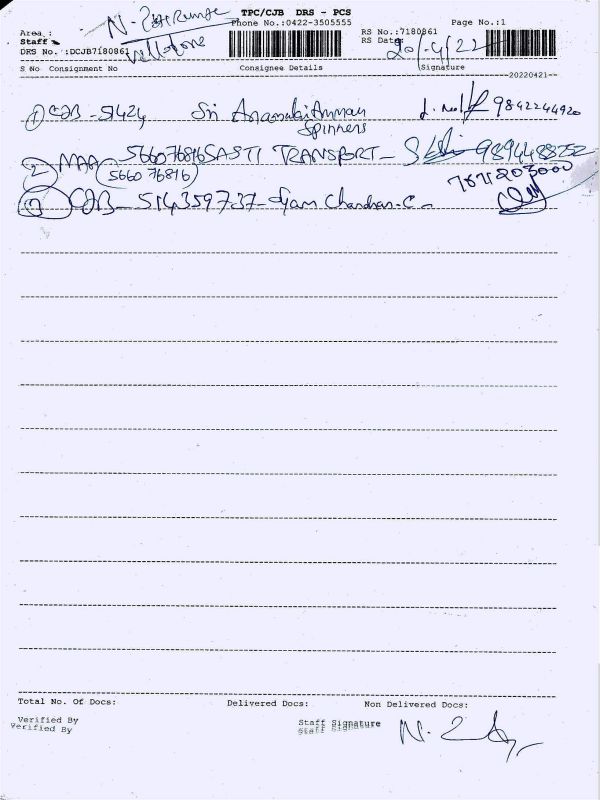 TPC/CJB DRS - PCS
Phone No.:0422-3505555
Page No.:1
Area :
RS No.:7180861
Staff :
RS Date:
20/4/22
DRS No. :DCJB7180861
S No Consignment No Consignee Details Signature
--20220421--
① CJB - 51424 Sri Annamalai Amman 9842244920
Spinners
② MAA 566076816 SASTI TRANSPORT - 9894488752
(5660 76816)
③ CJB - 514359737 - Syam Chandran.C - 7671803000
Total No. Of Docs: Delivered Docs: Non Delivered Docs:
Verified By
Verified By
Staff Signature
Staff Signature